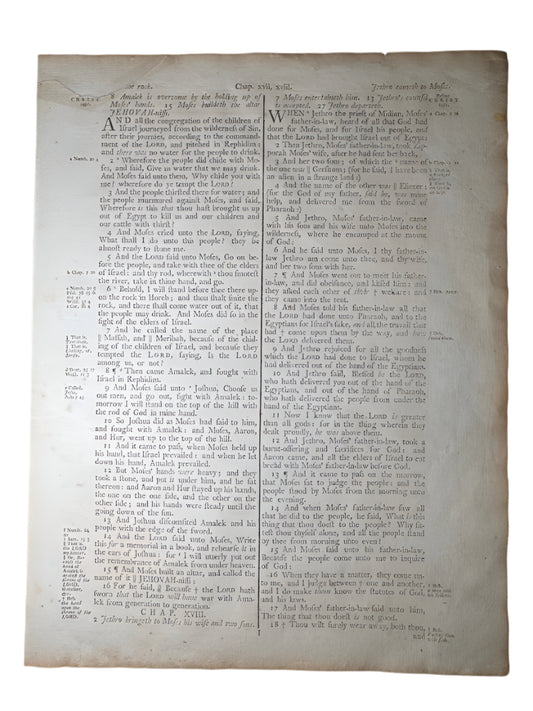 the rock.
Chap. xvii, xviii.
Jethro cometh to Moses.
8 Amalek is overcome by the holding up of
Moses' hands. 15 Moses buildeth the altar
JEHOVAH-nissi.
AND all the congregation of the children of
Israel journeyed from the wilderness of Sin,
after their journeys, according to the command-
ment of the LORD, and pitched in Rephidim:
and there was no water for the people to drink.
2 Wherefore the people did chide with Mo-
ses, and said, Give us water that we may drink.
And Moses said unto them, Why chide you with
me? wherefore do ye tempt the LORD?
3 And the people thirsted there for water; and
the people murmured against Moses, and said,
Wherefore is this that thou hast brought us up
out of Egypt to kill us and our children and
our cattle with thirst?
4 And Moses cried unto the LORD, saying,
What shall I do unto this people? they be
almost ready to stone me.
5 And the LORD said unto Moses, Go on be-
fore the people, and take with thee of the elders
of Israel: and thy rod, wherewith thou smotest
the river, take in thine hand, and go.
6 Behold, I will stand before thee there up-
on the rock in Horeb; and thou shalt smite the
rock, and there shall come water out of it, that
the people may drink. And Moses did so in the
sight of the elders of Israel.
7 And he called the name of the place
|| Massah, and || Meribah, because of the chid-
ing of the children of Israel, and because they
tempted the LORD, saying, Is the LORD
among us, or not?
8 ¶ Then came Amalek, and fought with
Israel in Rephidim.
9 And Moses said unto Joshua, Choose us
out men, and go out, fight with Amalek: to-
morrow I will stand on the top of the hill with
the rod of God in mine hand.
10 So Joshua did as Moses had said to him,
and fought with Amalek: and Moses, Aaron,
and Hur, went up to the top of the hill.
11 And it came to pass, when Moses held up
his hand, that Israel prevailed: and when he let
down his hand, Amalek prevailed.
12 But Moses' hands were heavy; and they
took a stone, and put it under him, and he sat
thereon: and Aaron and Hur stayed up his hands,
the one on the one side, and the other on the
other side; and his hands were steady until the
going down of the sun.
13 And Joshua discomfited Amalek and his
people with the edge of the sword.
14 And the LORD said unto Moses, Write
this for a memorial in a book, and rehearse it in
the ears of Joshua: for I will utterly put out
the remembrance of Amalek from under heaven.
15 ¶ And Moses built an altar, and called the
name of it || JEHOVAH-nissi:
16 For he said, || Because † the LORD hath
sworn that the LORD will have war with Ama-
lek from generation to generation.
CHAP. XVIII.
2 Jethro bringeth to Moses his wife and two sons.
7 Moses entertaineth him. 13 Jethro's counsel
is accepted. 27 Jethro departeth.
WHEN Jethro the priest of Midian, Moses'
father-in-law, heard of all that God had
done for Moses, and for Israel his people, and
that the LORD had brought Israel out of Egypt:
2 Then Jethro, Moses' father-in-law, took Zip-
porah Moses' wife, after he had sent her back,
3 And her two sons; of which the name of
the one was || Gershom; (for he said, I have been
an alien in a strange land:)
4 And the name of the other was || Eliezer;
(for the God of my father, said he, was mine
help, and delivered me from the sword of
Pharaoh:)
5 And Jethro, Moses' father-in-law, came
with his sons and his wife unto Moses into the
wilderness, where he encamped at the mount
of God:
6 And he said unto Moses, I thy father-in-
law Jethro am come unto thee, and thy wife,
and her two sons with her.
7 ¶ And Moses went out to meet his father-
in-law, and did obeisance, and kissed him; and
they asked each other of their † welfare: and
they came into the tent.
8 And Moses told his father-in-law all that
the LORD had done unto Pharaoh, and to the
Egyptians for Israel's sake, and all the travail that
had † come upon them by the way, and how
the LORD delivered them.
9 And Jethro rejoiced for all the goodness
which the LORD had done to Israel, whom he
had delivered out of the hand of the Egyptians.
10 And Jethro said, Blessed be the LORD,
who hath delivered you out of the hand of the
Egyptians, and out of the hand of Pharaoh,
who hath delivered the people from under the
hand of the Egyptians.
11 Now I know that the LORD is greater
than all gods: for in the thing wherein they
dealt proudly, he was above them.
12 And Jethro, Moses' father-in-law, took a
burnt-offering and sacrifices for God: and
Aaron came, and all the elders of Israel to eat
bread with Moses' father-in-law before God.
13 ¶ And it came to pass on the morrow,
that Moses sat to judge the people: and the
people stood by Moses from the morning unto
the evening.
14 And when Moses' father-in-law saw all
that he did to the people, he said, What is this
thing that thou doest to the people? Why sit-
test thou thyself alone, and all the people stand
by thee from morning unto even?
15 And Moses said unto his father-in-law,
Because the people come unto me to inquire
of God:
16 When they have a matter, they come un-
to me, and I judge between † one and another,
and I do make them know the statutes of God,
and his laws.
17 And Moses' father-in-law said unto him,
The thing that thou doest is not good.
18 † Thou wilt surely wear away, both thou,
and